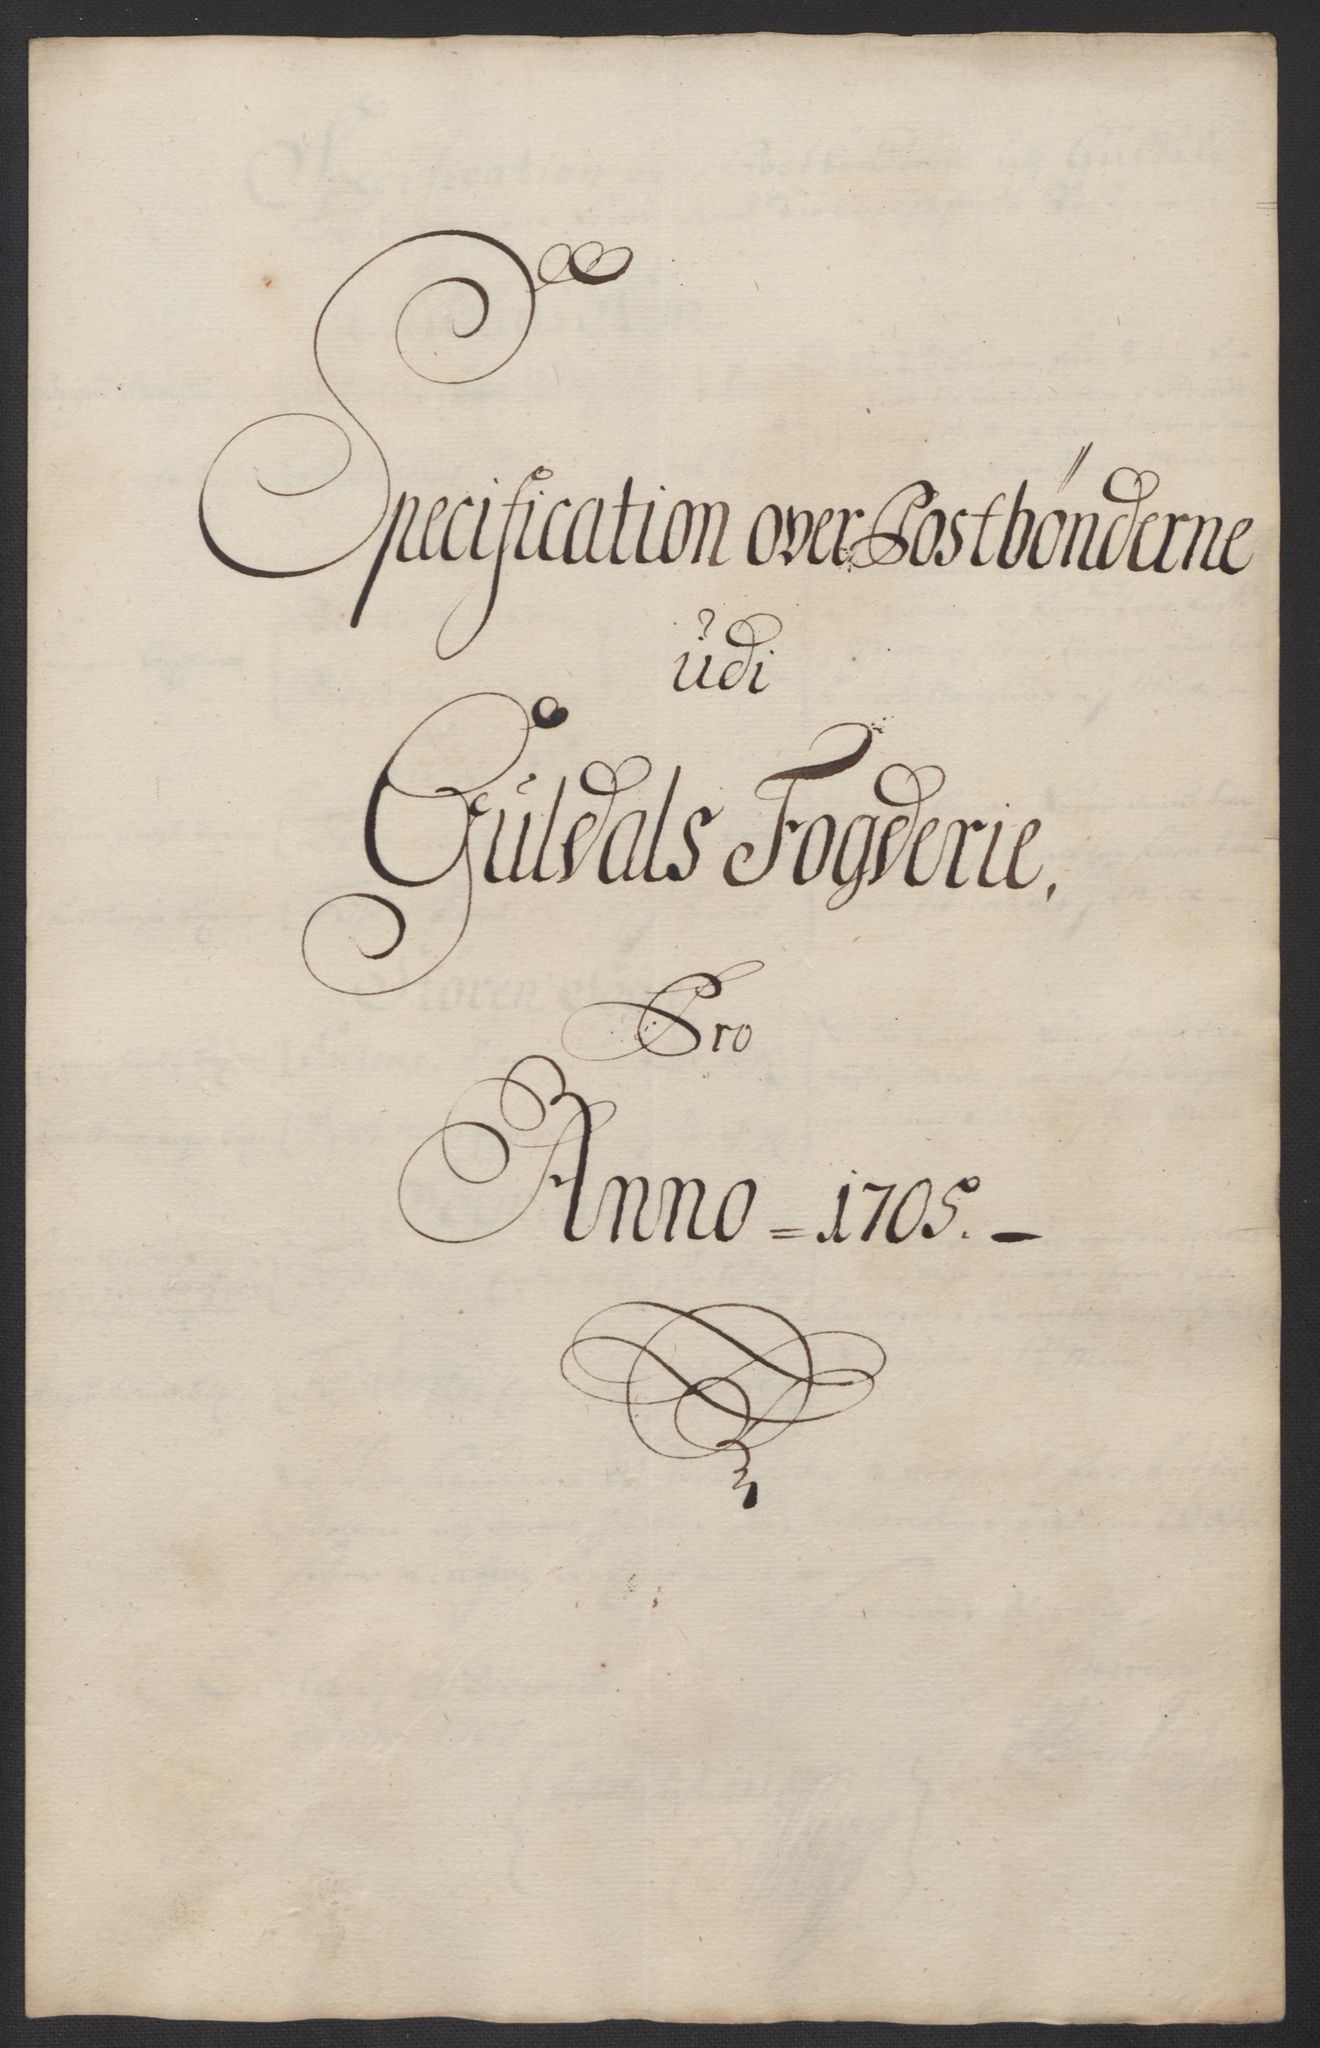 Specification over Postbönderne
üdi
Güldals Fogderie,
Pro
Anno = 1705. –